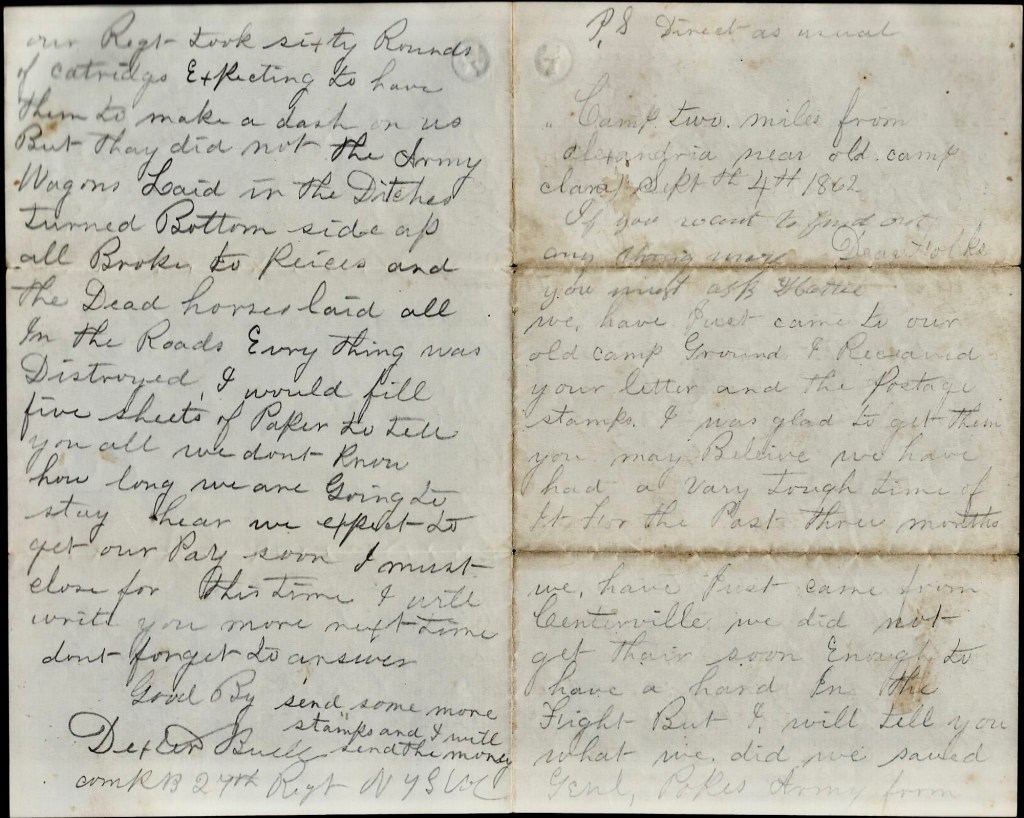 P.S Direct as usual
Camp two miles from
Alexandria near old camp
Clara Sept th 4th 1862
If you want to find out
any thing
Dear Folks
you must ask Hattie
we, have Just came to our
old camp Ground I Received
your letter and the Postage
stamps. I was glad to get them
you may Beleive we have
had a Vary tough time of
It For the Past three months
we, have Just came from
Centerville we did not
get thair soon Enough to
have a hand In the
Fight But I, will tell you
what we did we saved
Genl, Popes Army from
our Regt took sixty Rounds
of catridgs Expecting to have
them to make a dash on us
But thay did not the Army
Wagons Laid in the Ditches
turned Bottom side up
all Broke to Peices and
the Dead horses laid all
In the Roads Evry thing was
Distroyed I would fill
five sheets of Paper to tell
you all we dont Know
how long we are Going to
stay hear we expect to
get our Pay soon I must
close for this time I will
write you more next time
dont forget to answer
Good By send some more
stamps and I will
send the money
Dexter Buell
comp B 27th Regt N Y S Vol